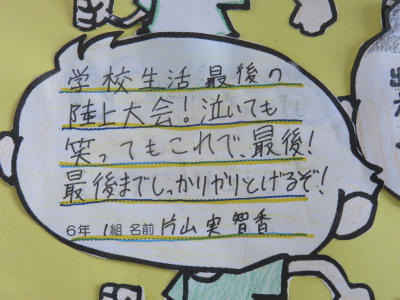 学校生活最後の
陸上大会！泣いても
笑ってもこれで、最後！
最後までしっかりやりとげるぞ！
6年 1組 名前 片山実智香